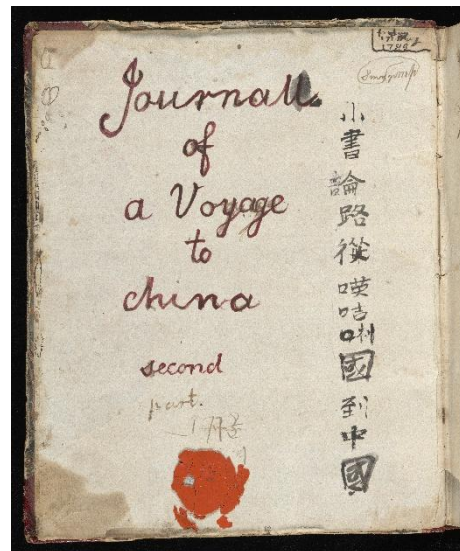 Journall.
of
a Voyage
to
china
second
part.
小書論路從𠸄咭唎國到中國